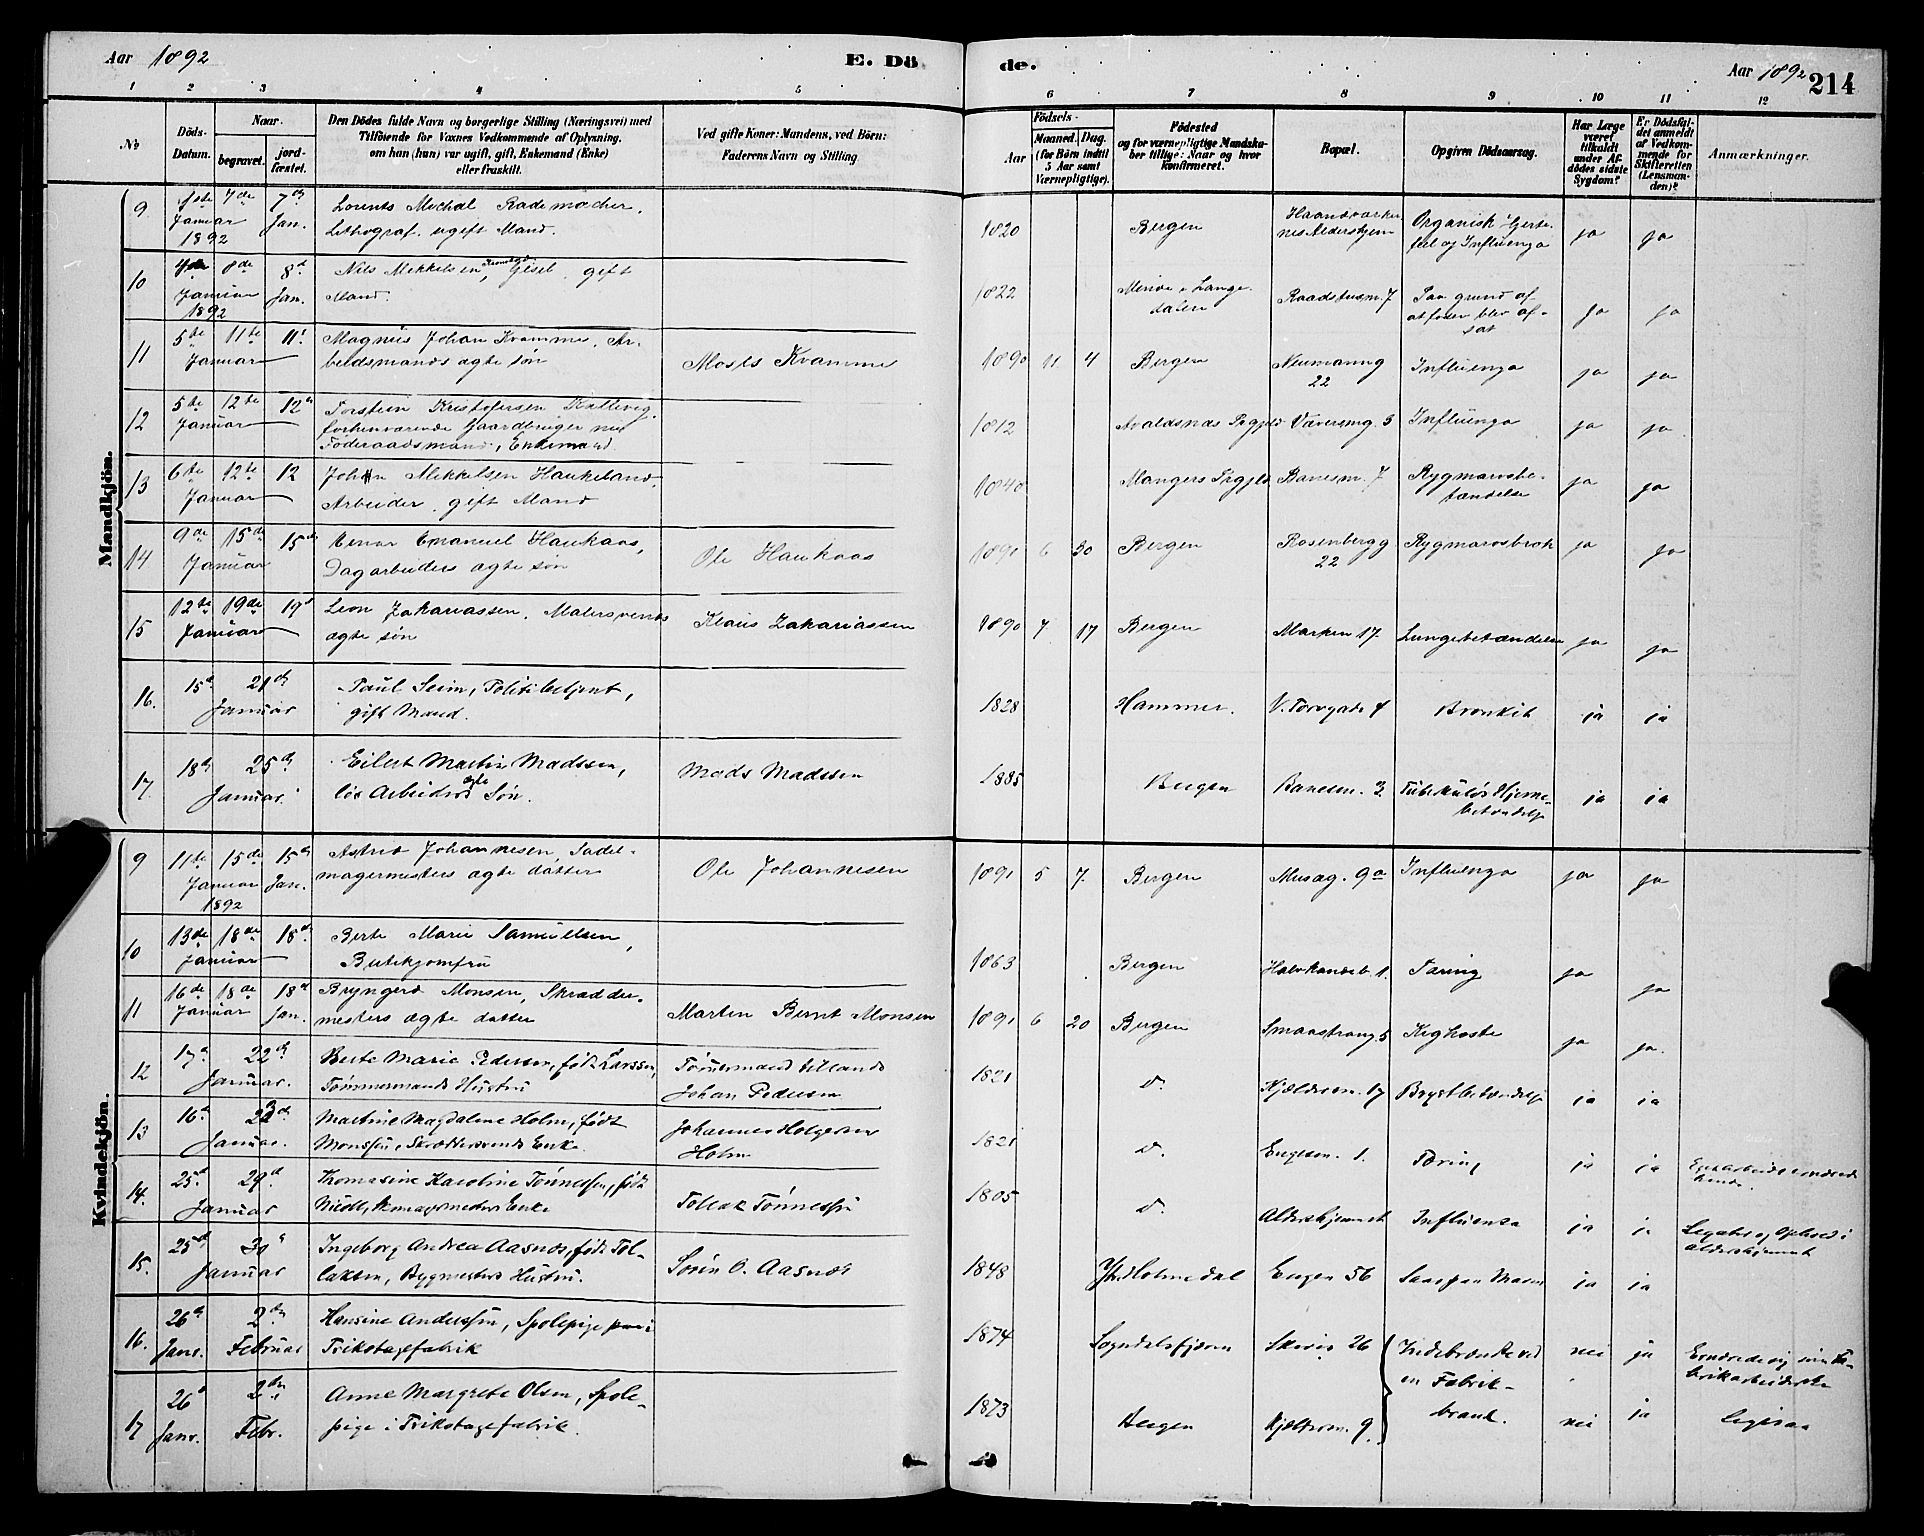 Aar 1892
E. Dö
de.
Aar 1892
214
1 2 3 4 5 6 7 8 9 10 11 12
No
Döds-Datum.
Naar. begravet. jordfæstet.
Den Dödes fulde Navn og borgerlige Stilling (Næringsvei) med
Tilföiende for Voxnes Vedkommende af Oplysning,
om han (hun) var ugift, gift, Enkemand (Enke)
eller fraskilt.
Ved gifte Koner: Mandens, ved Börn:
Faderens Navn og Stilling
Födsels-
Aar
Maaned. Dag.
(for Börn indtil
5 Aar samt
Værnepligtige).
Födested
og for værnepligtige Mandska-
ber tillige: Naar og hvor
konfirmeret.
Bopæl.
Opgiven Dödsaarsag.
Har Læge
været
tilkaldt
under Af-
dödes sidste
Sygdom?
Er Dödsfal-
det anmeldt
af Vedkom-
mende for
Skifteretten
(Lensman-
den)?
Anmærkninger.
Mandkjön.
9 1ste Januar 1892 7de 7de Jan. Lorents Michal Rademacher,
Lithograf. ugift Mand.
1820 Bergen Haandværker-
nes Aldershjem Organisk Hjerte-
feil og Influenza ja ja
10 4de Januar 1892 8de 8d Jan. Nils Mikkelsen Gisel, gift
Mand.
1822 Minde i Lange-
dalen Raadstusm. 7 Paa grund af
at foden blev af-
sat ja ja
11 5te 11te 11t Januar Magnus Johan Kvamme, Ar-
beidsmands ægte søn Mosts Kvamme
1890 11 4 Bergen Neumanng
22 Influenza ja ja
12 5te 12te 12te Januar Torstein Kristofersen Kallevig,
forhenværende Gaardbruger nu
Föderaadsmand, Enkemand.
1812 Avaldsnes Prgjeld Væversmg. 3 Influenza ja ja
13 6te 12te 12 Januar Johan Mikkelsen Haukeland,
Arbeider, gift Mand
1840 Mangers Prgjeld Banesm. 7 Rygmarvsbe-
tændelse ja ja
14 9de 15de 15de Januar Einar Emanuel Haukaas,
Dagarbeiders ægte søn Ole Haukaas
1891 6 30 Bergen Rosenbergg
22 Rygmarvsbrok ja ja
15 12te 19de 19d Januar Leon Zakariassen, Malersvends
ægte søn Klaus Zakariassen
1890 7 17 Bergen Marken 17. Lungebetændelse ja ja
16. 15d 21de Januar Paul Seim, Politibetjent,
gift Mand.
1828 Hammer. V. Torvgade 4 Bronkit ja ja
17. 18de 25de Januar. Eilert Martin Madssen,
løs Arbeiders ægte Søn. Mads Madssen
1885 Bergen Banesm. 3. Tuberkuløs Hjerne-
betændelse ja ja
Kvindekjön.
9 11te Januar 1892 15de 15de Jan. Astrid Johannesen, Sadel-
magermesters ægte datter Ole Johannesen
1891 5 7. Bergen Musæg. 9a Influenza ja ja
10 13de 18de 18d. Januar Berte Marie Samuelsen,
Butikjomfru
1863 Bergen Halvkandeb. 1. Tæring ja ja
11 16de Januar 18de 18d Jan. Bryngerd Monsen, Skrædder-
mesters ægte datter Marten Bernt Monsen
1891 6 20 Bergen Smaastrang. 5 Kighoste ja ja.
12 17d 22de Januar. Berte Marie Pedersen, født Larssen,
Tømmermands Hustru Tømmermand tillands
Johan Pedersen
1821 d. Kjeldersm. 17 Brystbetændelse ja ja
13 16d 22de Januar. Martine Magdalene Holm, født
Monssen, Skræddersvends Enke. Johannes Holgersen
Holm
1821 d. Engesm. 1. Tæring ja ja
14. 25d 29d Januar Thomasine Karoline Tønnessen, født
Skomagermesters Enke Tollak Tønnessen
1805 d. Aldershjemmet Influensa ja ja Legater og Ophold i
Aldershjemmet
15. 25d 30d Januar Ingeborg Andrea Aasnæs, født Tol-
laksen, Bygmesters Hustru. Søren O. Aasnæs
1848 Y. Holmedal Engen 56 ja ja
16. 26de Janr. 2den Februar Hansine Anderssen, Spolepige i
Trikotagefabrik
1874 Sogndalsfjøren Skiven 26 Indebrændte ved
en Fabrik-
brand. nei ja Ernærede sig som Fa-
brikarbeiderske
17 26d Janr. 2den Febr. Anne Margrete Olsen, Spole-
pige i Trikotagefabrik.
1873 Bergen Kjeldersm. 9. nei ja ligesaa